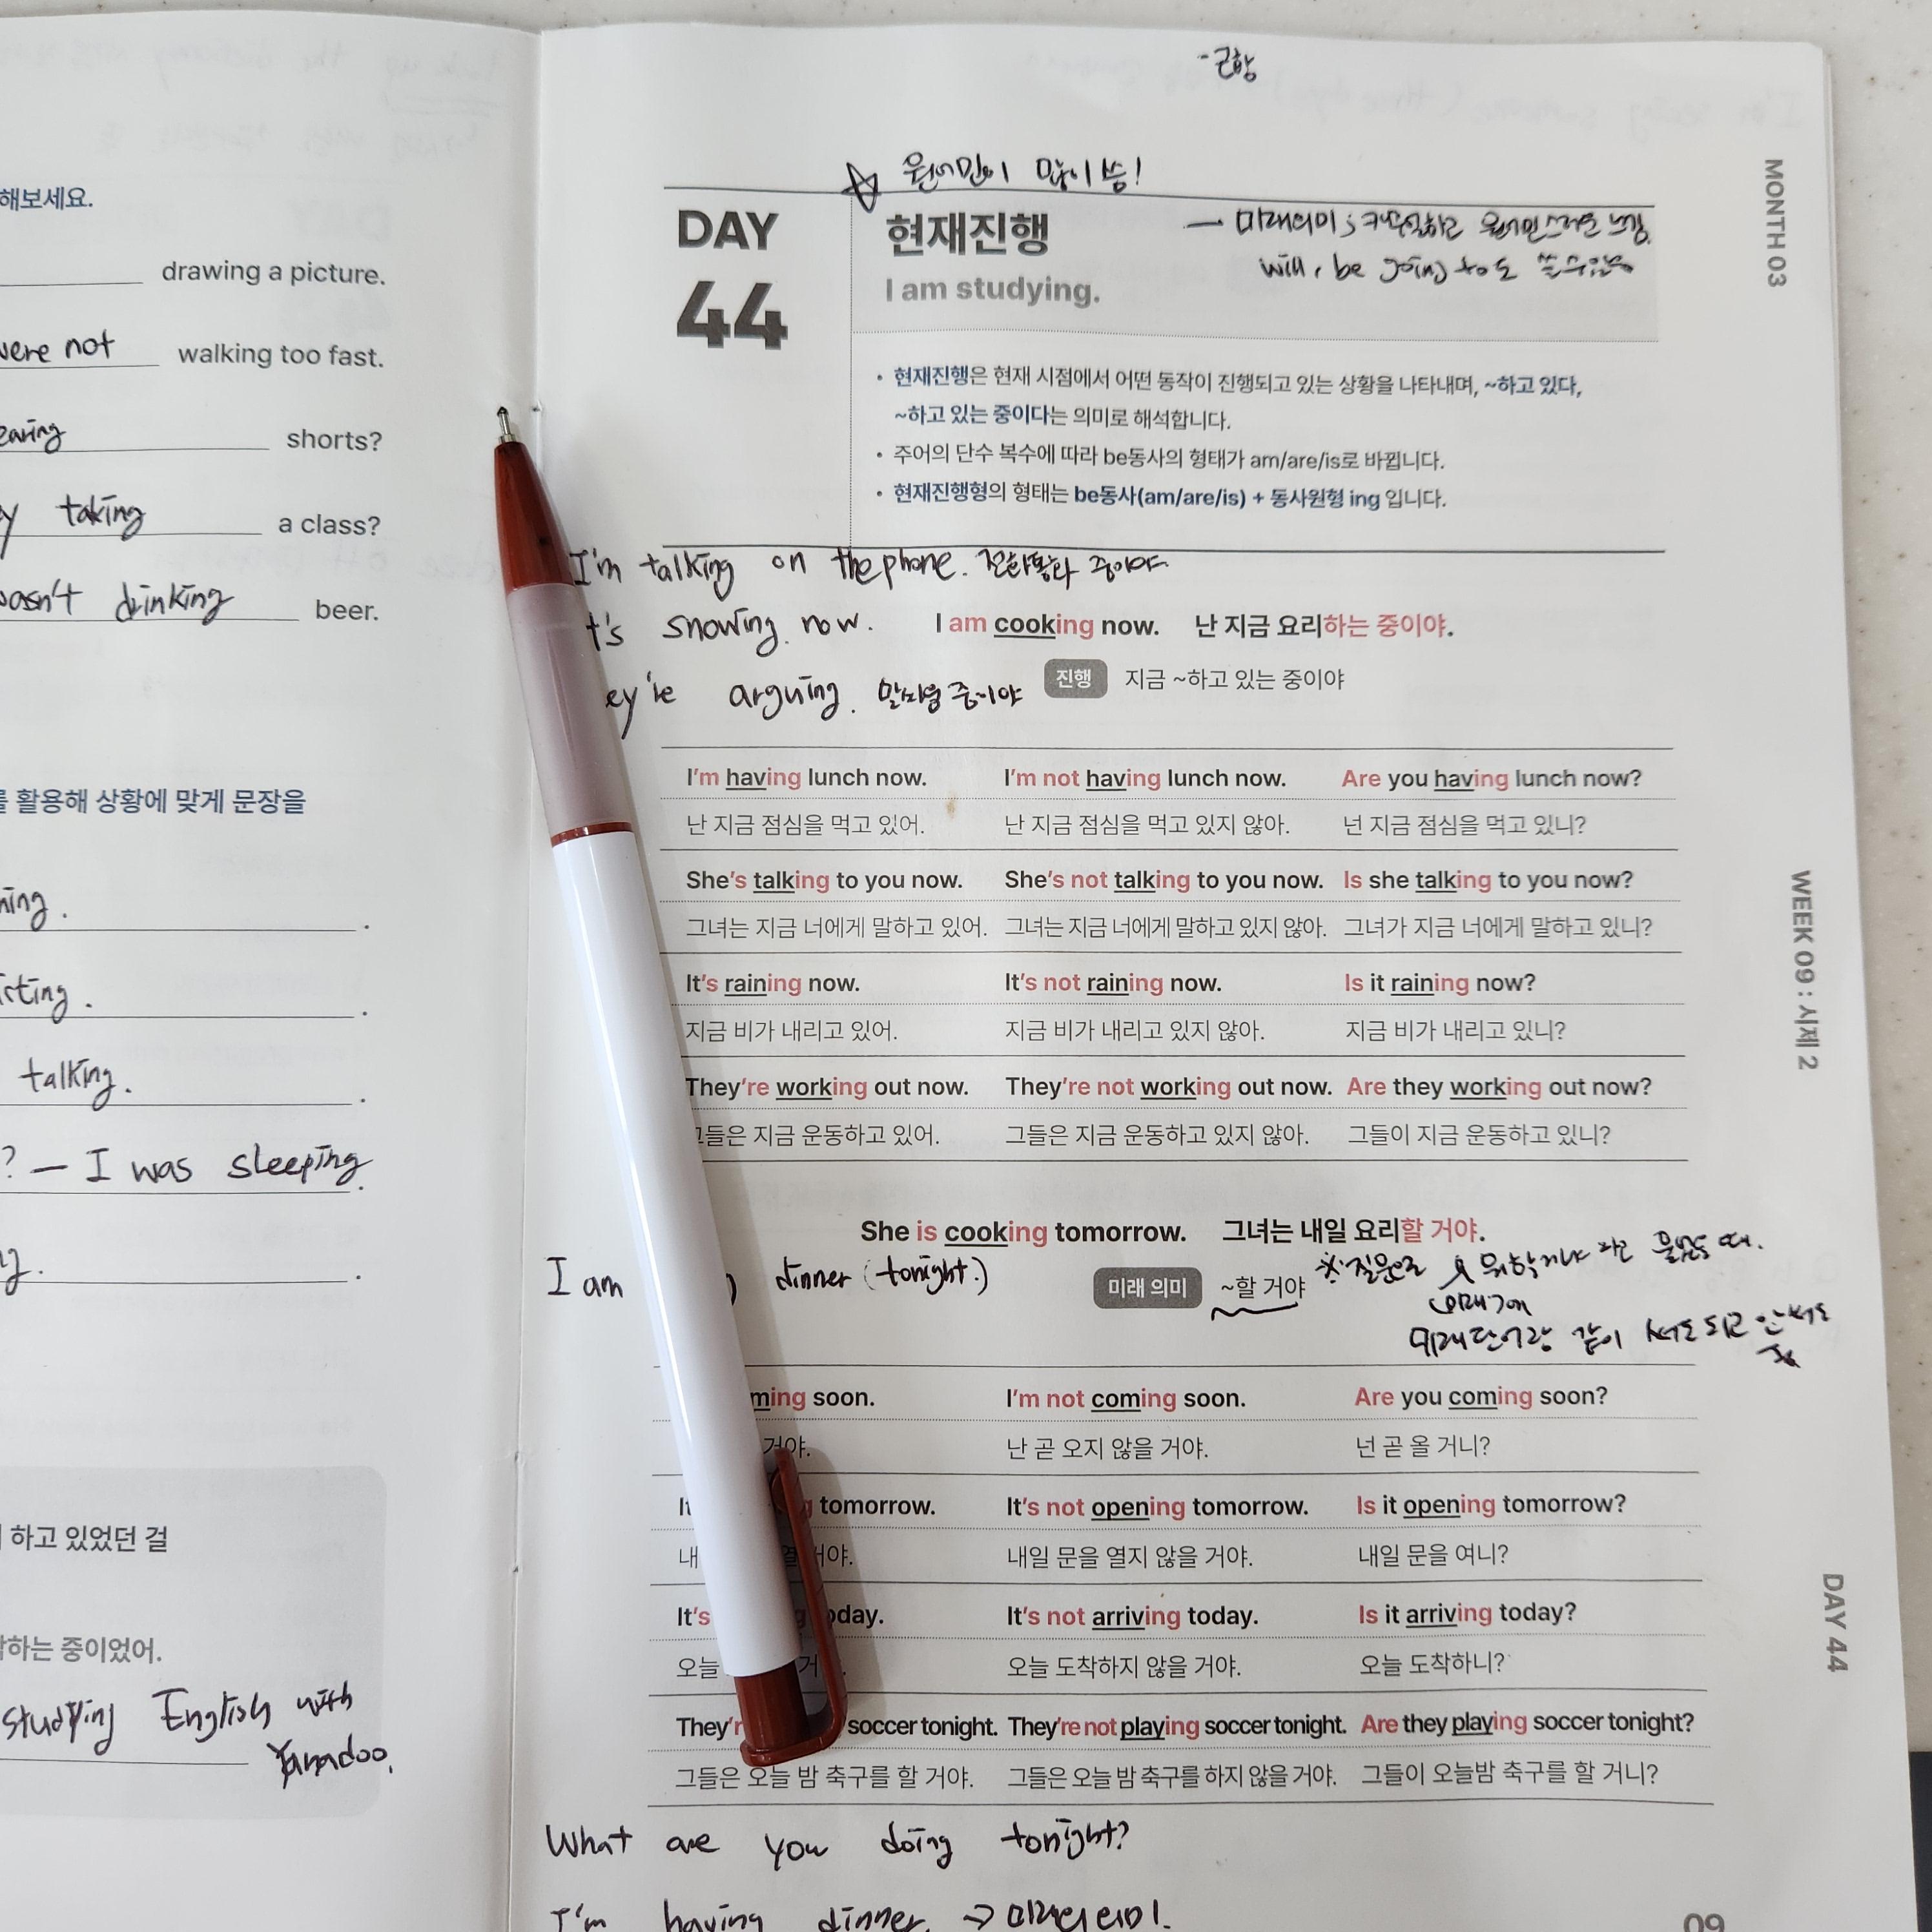 해보세요.
drawing a picture.
were not walking too fast.
shorts?
taking a class?
wasn't drinking beer.
활용해 상황에 맞게 문장을
talking.
? — I was sleeping.
하고 있었던 걸
하는 중이었어.
studying English with
Yanadoo.
☆ 원어민이 많이 씀!
DAY
44
현재진행
I am studying.
will, be going to도 쓸 수 있음
• 현재진행은 현재 시점에서 어떤 동작이 진행되고 있는 상황을 나타내며, ~하고 있다,
~하고 있는 중이다는 의미로 해석합니다.
• 주어의 단수 복수에 따라 be동사의 형태가 am/are/is로 바뀝니다.
• 현재진행형의 형태는 be동사(am/are/is) + 동사원형 ing 입니다.
I'm talking on the phone. 전화통화 중이야.
t's snowing now.
I am cooking now. 난 지금 요리하는 중이야.
ey're arguing. 말싸움 중이야
진행 지금 ~하고 있는 중이야
I'm having lunch now. I'm not having lunch now. Are you having lunch now?
난 지금 점심을 먹고 있어. 난 지금 점심을 먹고 있지 않아. 넌 지금 점심을 먹고 있니?
She's talking to you now. She's not talking to you now. Is she talking to you now?
그녀는 지금 너에게 말하고 있어. 그녀는 지금 너에게 말하고 있지 않아. 그녀가 지금 너에게 말하고 있니?
It's raining now. It's not raining now. Is it raining now?
지금 비가 내리고 있어. 지금 비가 내리고 있지 않아. 지금 비가 내리고 있니?
They're working out now. They're not working out now. Are they working out now?
그들은 지금 운동하고 있어. 그들은 지금 운동하고 있지 않아. 그들이 지금 운동하고 있니?
She is cooking tomorrow. 그녀는 내일 요리할 거야.
I am dinner (tonight.)
미래 의미 ~할 거야
※ 질문으로 뭐할거냐 라고 물었을 때.
미래단어랑 같이 써도 되고 안써도
ming soon. I'm not coming soon. Are you coming soon?
거야. 난 곧 오지 않을 거야. 넌 곧 올 거니?
tomorrow. It's not opening tomorrow. Is it opening tomorrow?
내 열 거야. 내일 문을 열지 않을 거야. 내일 문을 여니?
It's today. It's not arriving today. Is it arriving today?
오늘 거 . 오늘 도착하지 않을 거야. 오늘 도착하니?
They'r soccer tonight. They're not playing soccer tonight. Are they playing soccer tonight?
그들은 오늘 밤 축구를 할 거야. 그들은 오늘 밤 축구를 하지 않을 거야. 그들이 오늘밤 축구를 할 거니?
What are you doing tonight?
I'm having dinner. → 미래의미!
MONTH 03
WEEK 09 : 시제 2
DAY 44